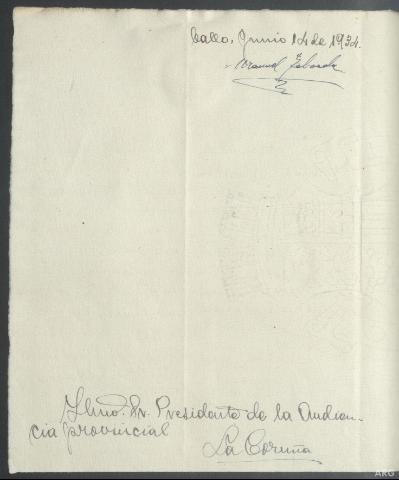 Junio 14 de 1934.
Manuel Taboada
Ilmo. Sr. Presidente de la Audien-
cia provincial
La Coruña
ARG